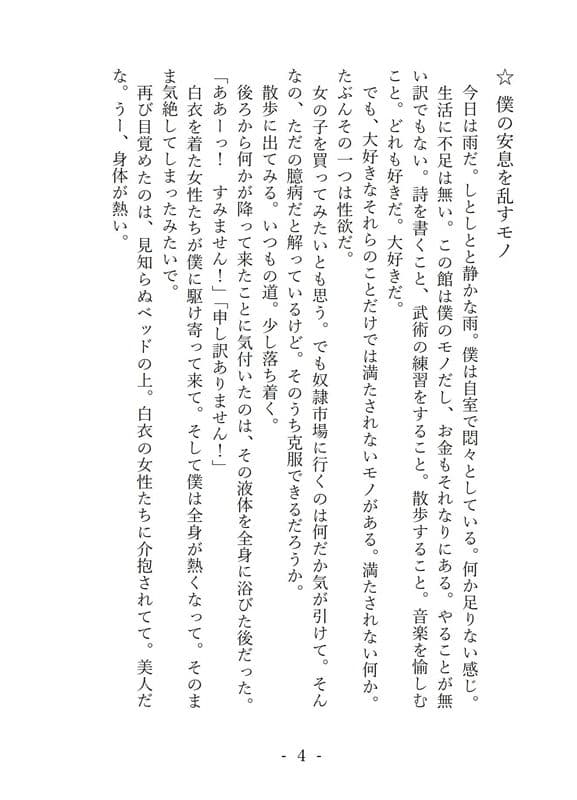 ☆ 僕の安息を乱すモノ
今日は雨だ。しとしとと静かな雨。僕は自室で悶々としている。何か足りない感じ。
生活に不足は無い。この館は僕のモノだし、お金もそれなりにある。やることが無
い訳でもない。詩を書くこと、武術の練習をすること。散歩すること。音楽を愉しむ
こと。どれも好きだ。大好きだ。
でも、大好きなそれらのことだけでは満たされないモノがある。満たされない何か。
たぶんその一つは性欲だ。
女の子を買ってみたいとも思う。でも奴隷市場に行くのは何だか気が引けて。そん
なの、ただの臆病だと解っているけど。そのうち克服できるだろうか。
散歩に出てみる。いつもの道。少し落ち着く。
後ろから何かが降って来たことに気付いたのは、その液体を全身に浴びた後だった。
「ああーっ！　すみません！」「申し訳ありません！」
白衣を着た女性たちが僕に駆け寄って来て。そして僕は全身が熱くなって。そのま
ま気絶してしまったみたいで。
再び目覚めたのは、見知らぬベッドの上。白衣の女性たちに介抱されてて。美人だ
な。うー、身体が熱い。
- 4 -